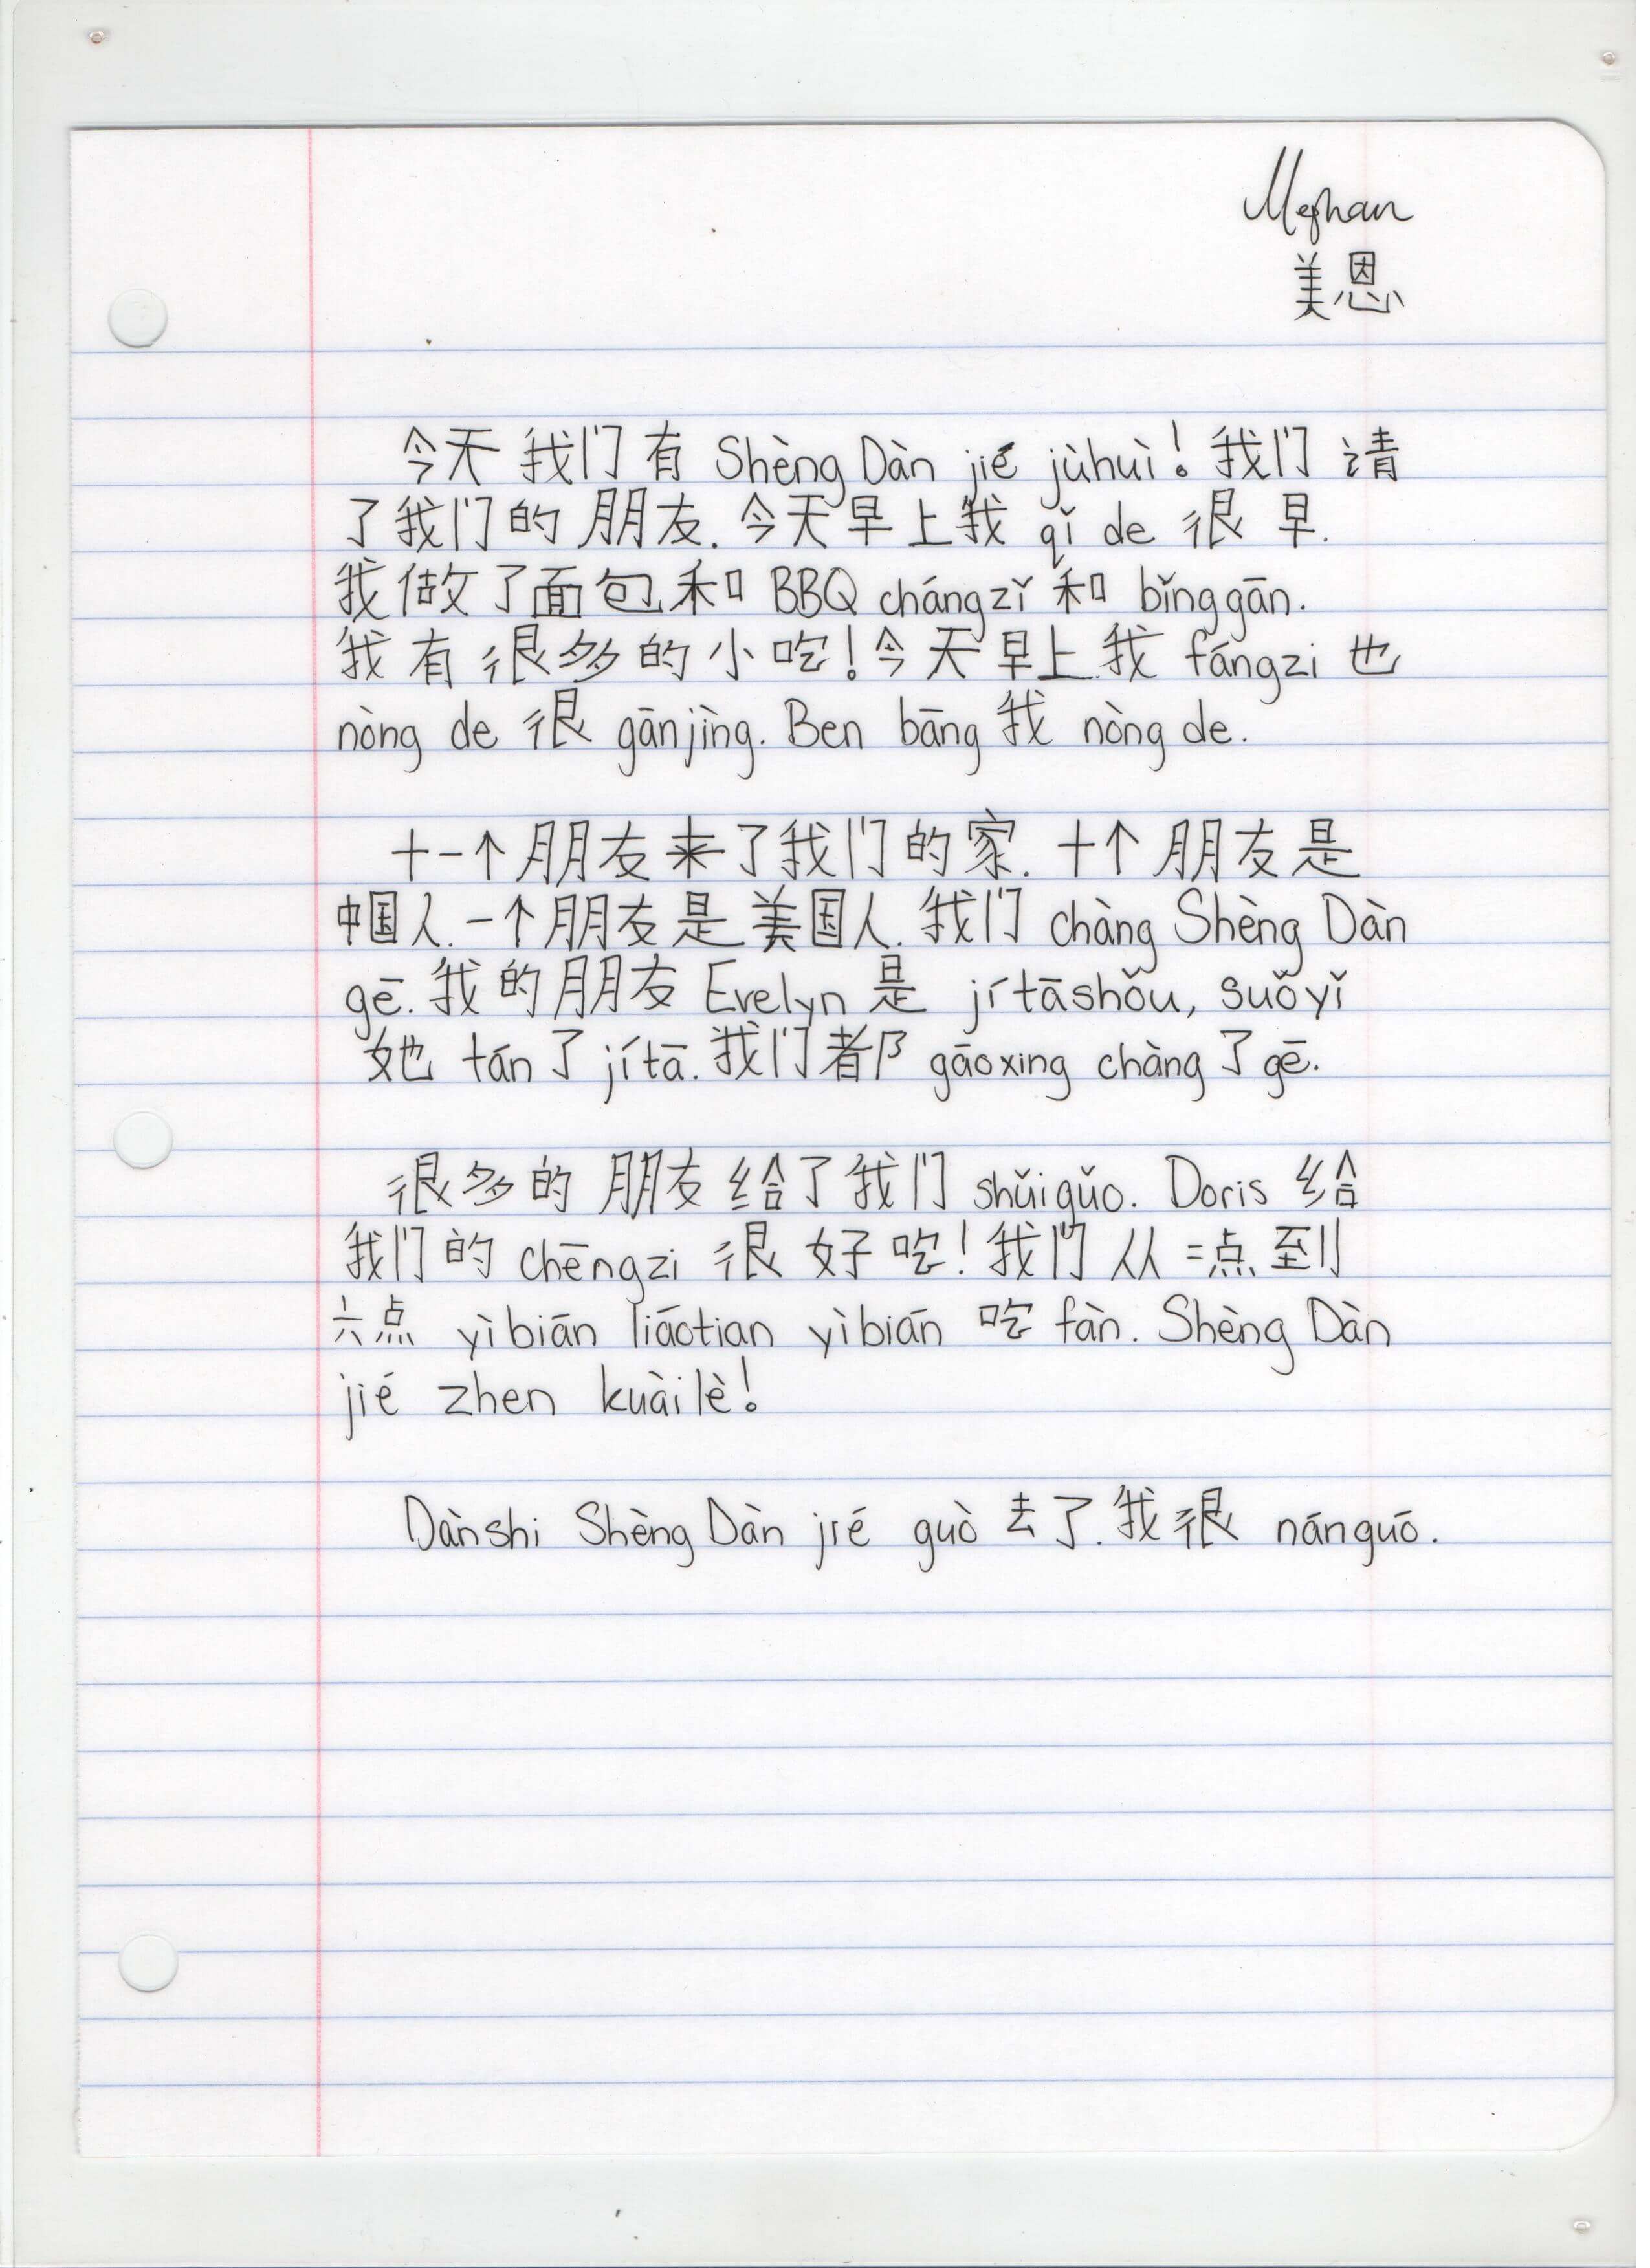 Meghan
美恩
今天我们有 Shèng Dàn jié jùhuì! 我们请
了我们的朋友. 今天早上我 qǐ de 很早.
我做了面包和 BBQ chángzǐ 和 bǐnggān.
我有很多的小吃! 今天早上我 fángzi 也
nòng de 很 gānjìng. Ben bāng 我 nòng de.
十一个朋友来了我们的家. 十个朋友是
中国人. 一个朋友是美国人. 我们 chàng Shèng Dàn
gē. 我的朋友 Evelyn 是 jítāshǒu, suǒyǐ
她 tán 了 jítā. 我们都 gāoxing chàng 了 gē.
很多的朋友给了我们 shǔiguǒ. Doris 给
我们的 chēngzi 很好吃! 我们从二点到
六点 yìbiān liáotian yìbiān 吃 fàn. Shèng Dàn
jié zhen kuàilè!
Dànshi Shèng Dàn jié guò 去了. 我很 nánguō.